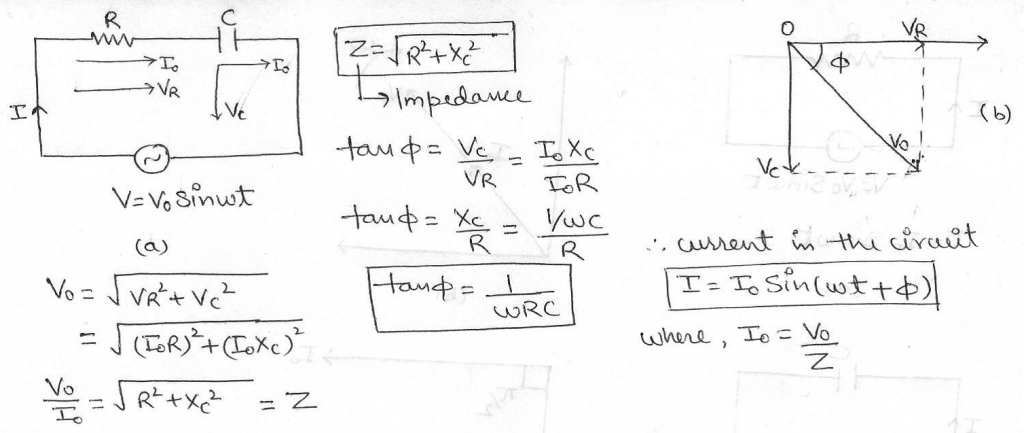 R C
I₀ I₀
V_R
I V_C
V = V₀ Sinωt
(a)
V₀ = √(V_R² + V_C²)
= √((I₀R)² + (I₀X_C)²)
V₀/I₀ = √(R² + X_C²) = Z
Z = √(R² + X_C²)
↳ Impedance
tan ϕ = V_C/V_R = I₀X_C/I₀R
tan ϕ = X_C/R = (1/ωC)/R
tan ϕ = 1/ωRC
O V_R
ϕ
(b)
V₀
V_C
∴ current in the circuit
I = I₀ Sin(ωt + ϕ)
where, I₀ = V₀/Z